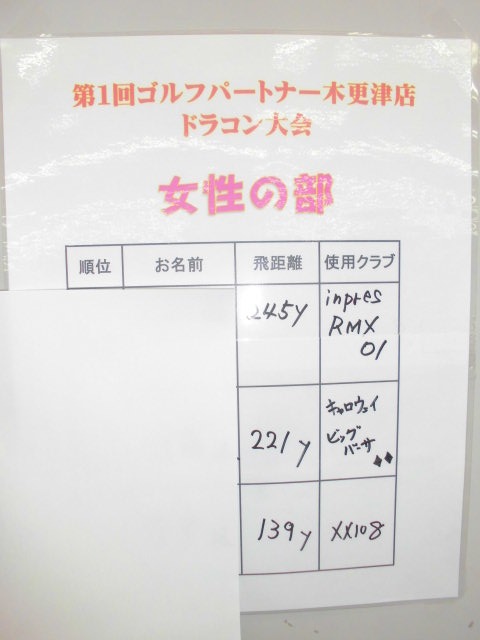 第1回ゴルフパートナー木更津店
ドラコン大会
女性の部
順位 お名前 飛距離 使用クラブ
245y inpres
RMX
01
221y キャロウェイ
ビッグ
バーサ
139y XX108